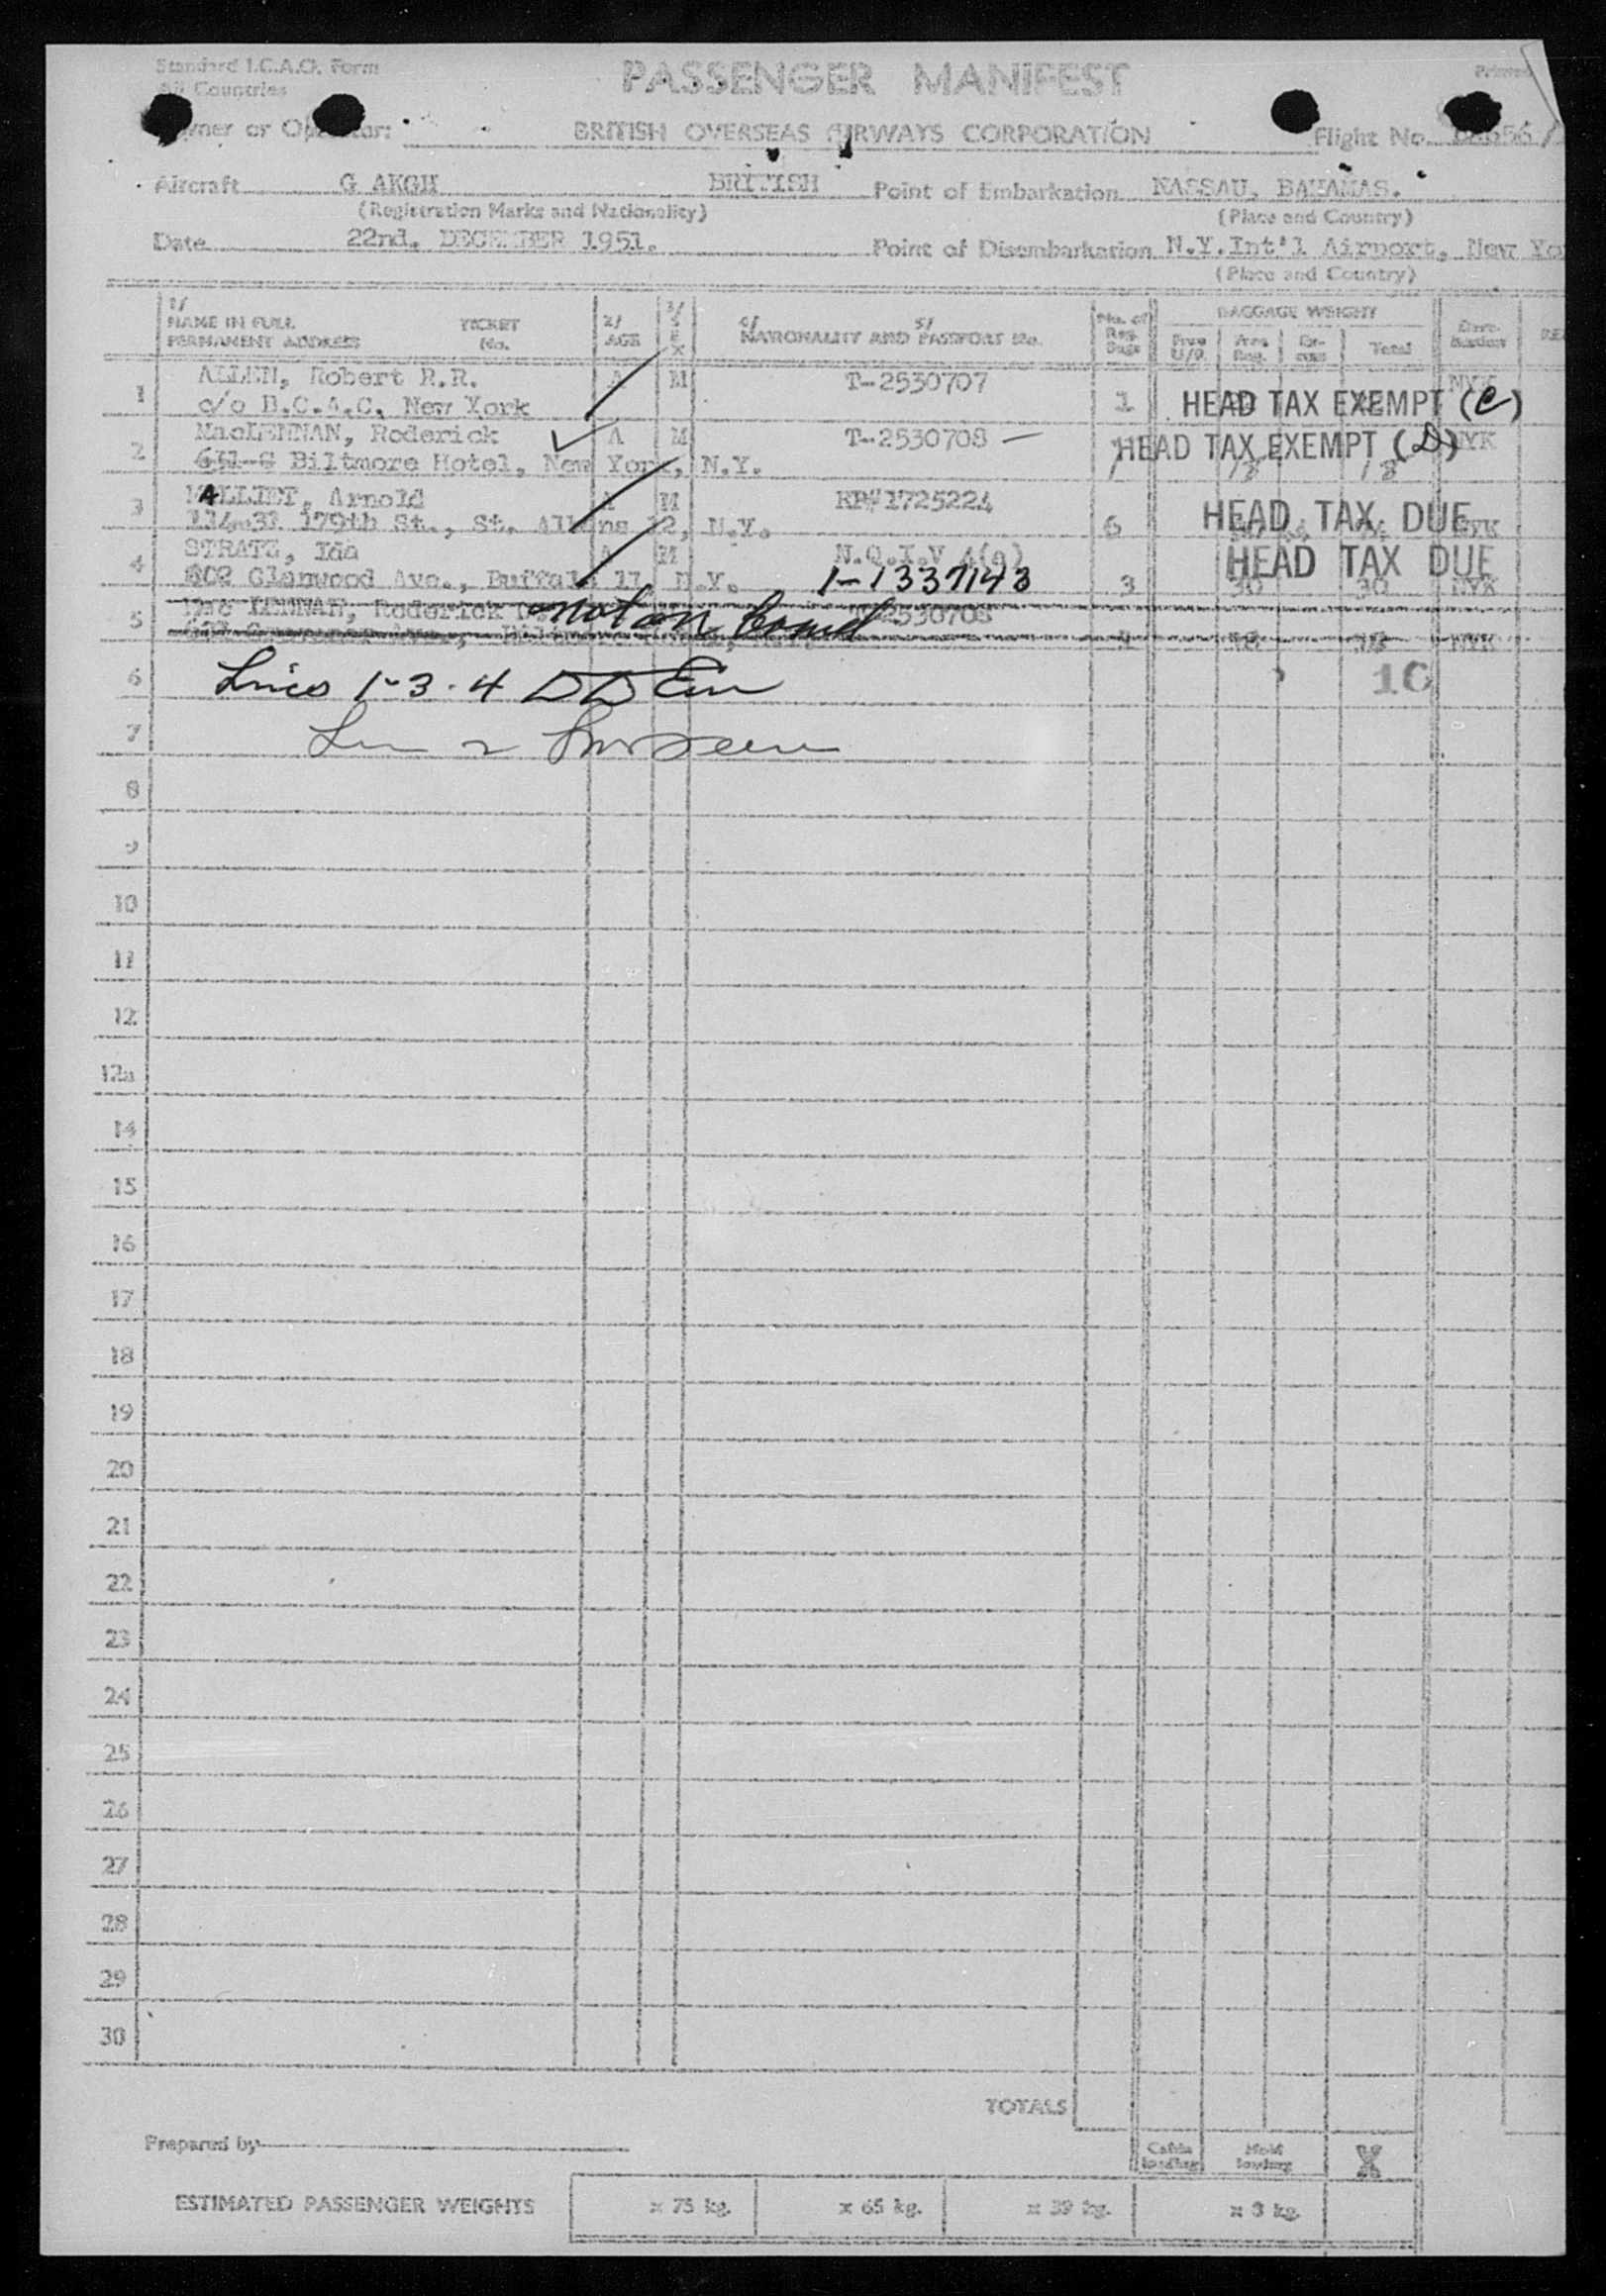 Standard I.C.A.O. Form
All Countries
PASSENGER MANIFEST
Printed
Owner or Operator:
BRITISH OVERSEAS AIRWAYS CORPORATION
Flight No.
Aircraft G AKGH BRITISH
Point of Embarkation NASSAU, BAHAMAS.
(Registration Marks and Nationality)
(Place and Country)
Date 22nd. DECEMBER 1951.
Point of Disembarkation N.Y.Int'l Airport, New Yo
(Place and Country)
1/ NAME IN FULL
PERMANENT ADDRESS
TICKET No.
2/ AGE
3/ SEX
4/ 5/ NATIONALITY AND PASSPORT No.
No. of Reg. Bags
BAGGAGE WEIGHT
Free Reg.
Total
1 ALLEN, Robert R.R. A M T-2530707 NYK
c/o B.O.A.C. New York 1 HEAD TAX EXEMPT (C)
2 MacLENNAN, Roderick A M T-2530708 — HEAD TAX EXEMPT (D) NYK
Biltmore Hotel, New York, N.Y. 1 18 18
3 MALLIET, Arnold A M RP#1725224
114-31 179th St., St. Albans 12, N.Y. 6 HEAD TAX DUE NYK
4 STRATZ, Ida A M N.Q.I.V 4(a) HEAD TAX DUE
802 Glenwood Ave., Buffalo 11, N.Y. 1-1337143 3 30 30 NYK
5 Mac LENNAN, Roderick not on board 2530708
NYK
6 Lines 1-3-4 16
7
8
9
10
11
12
12a
14
15
16
17
18
19
20
21
22
23
24
25
26
27
28
29
30
TOTALS
Prepared by
Cabin loading
Hold loading
X
ESTIMATED PASSENGER WEIGHTS x 75 kg. x 65 kg. x 39 kg. x 8 kg.